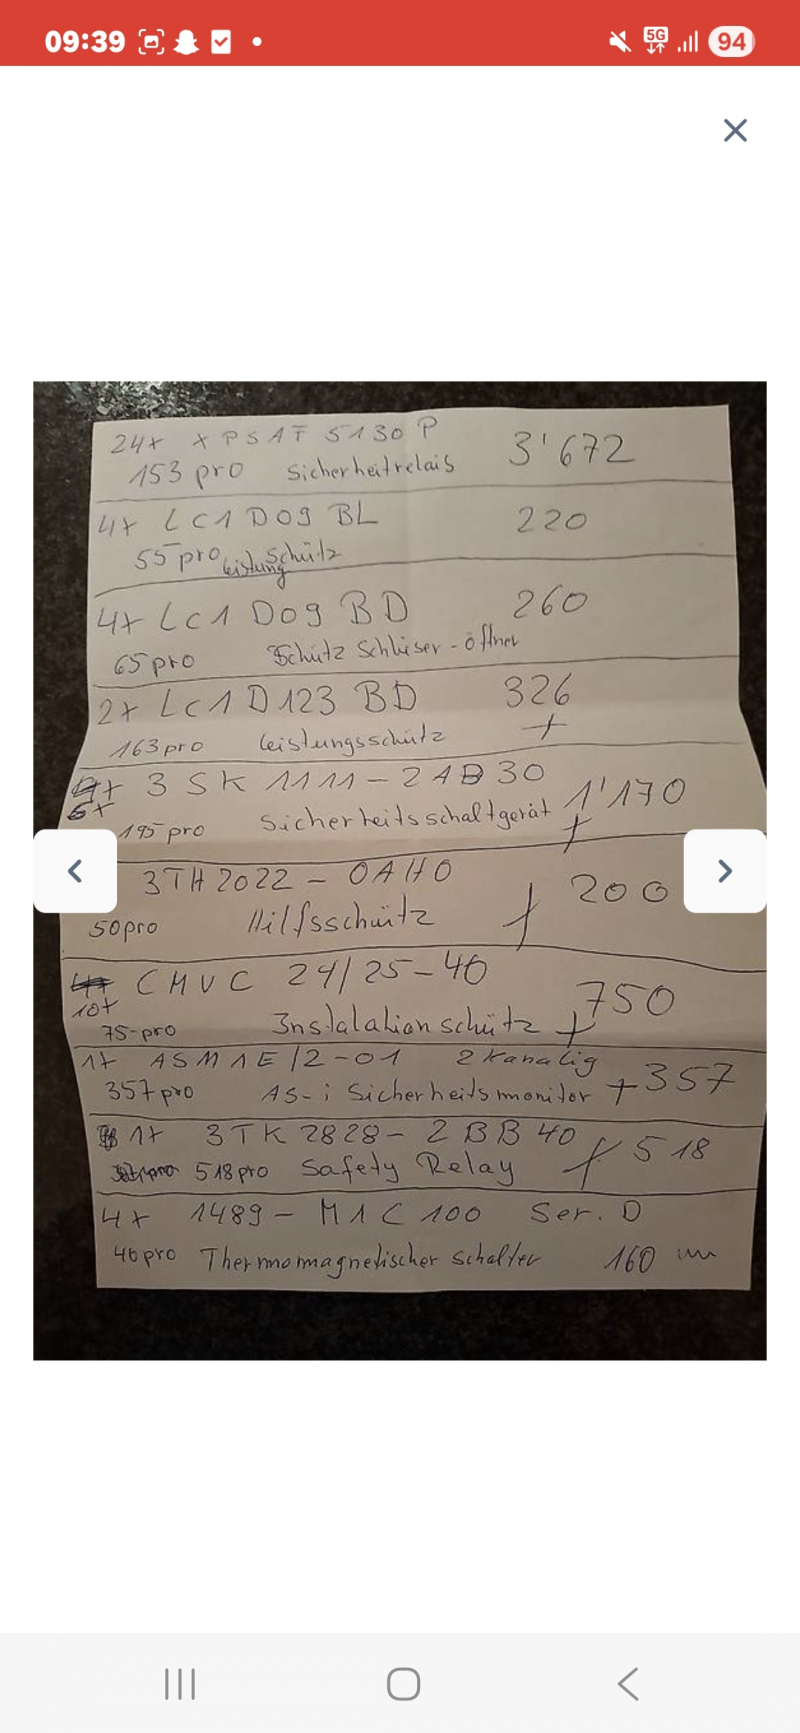 09:39
5G
94
24x XPSAF 5130 P
3'672
153 pro Sicherheitrelais
4x LC1 D09 BL
220
55 pro Leistung Schütz
4x LC1 D09 BD
260
65 pro Schütz Schlieser - öffner
2x LC1 D123 BD
326
163 pro Leistungsschütz
+
3SK 1111-2AB30
6x
1'170
195 pro Sicherheitsschaltgerät
+
3TH2022 - 0AH0
200
50pro Hilfsschütz
+
CMUC 24/25-40
10x
750
75-pro Instalationschütz +
1x ASM1E/2-01 2Kanalig
357pro AS-i Sicherheitsmonitor + 357
1x 3TK 2828- 2BB40
518pro Safety Relay + 518
4x 1489 - M1C100 Ser. D
40pro Thermomagnetischer Schalter 160